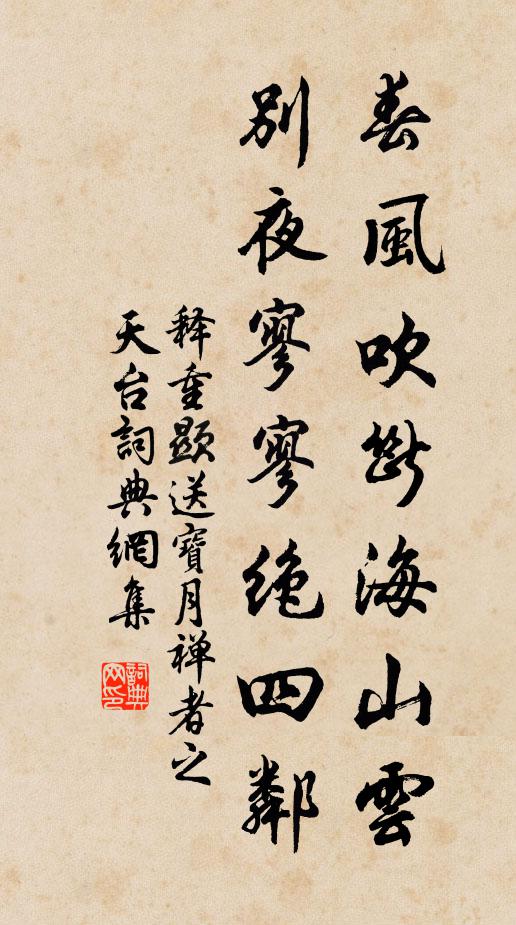 春風吹斷海山雲
別夜寥寥絶四鄰
释重顯送寶月禅者之
天台詞典網集
詞典網印